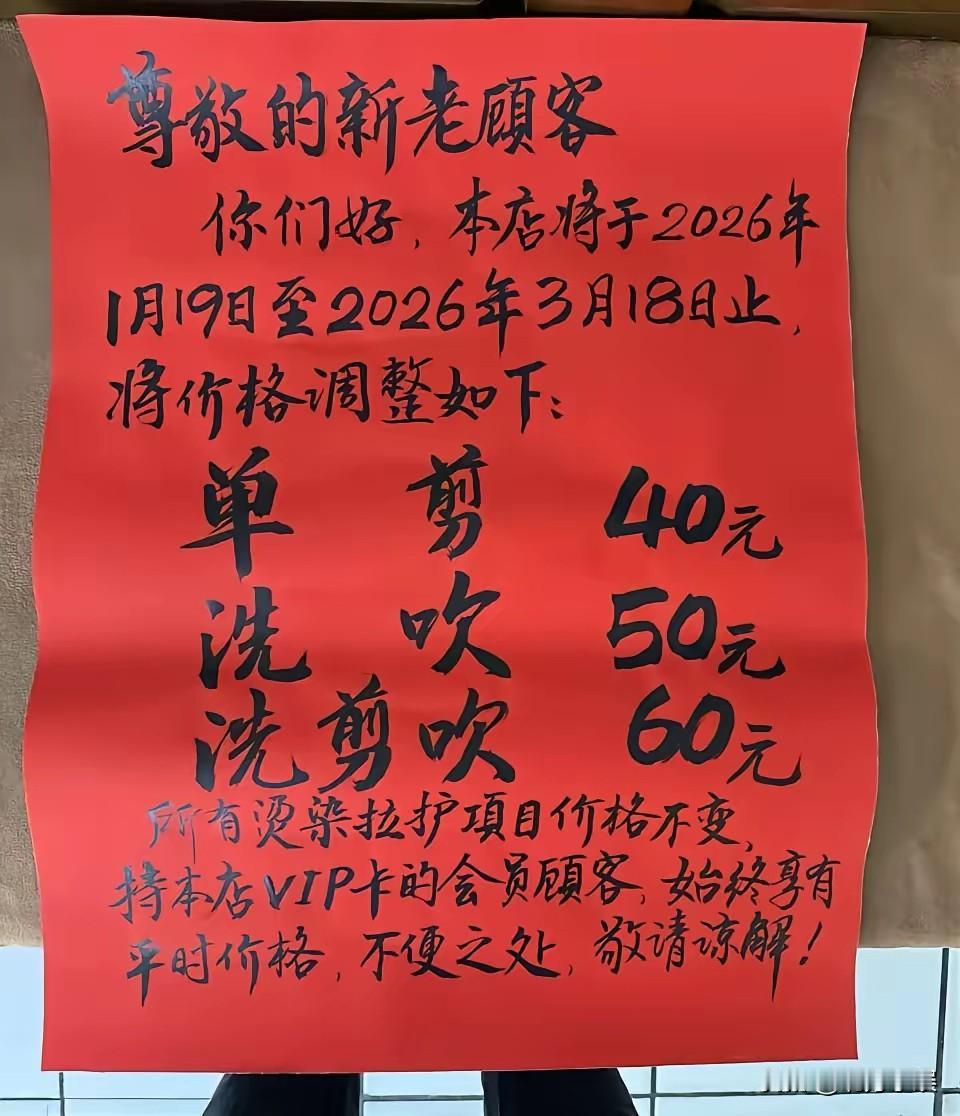 尊敬的新老顧客
你们好，本店将于2026年
1月19日至2026年3月18日止，
将价格调整如下：
单 剪 40元
洗 吹 50元
洗剪吹 60元
所有烫染拉护项目价格不变，
持本店VIP卡的会员顧客，始终享有
平时价格，不便之处，敬请谅解！